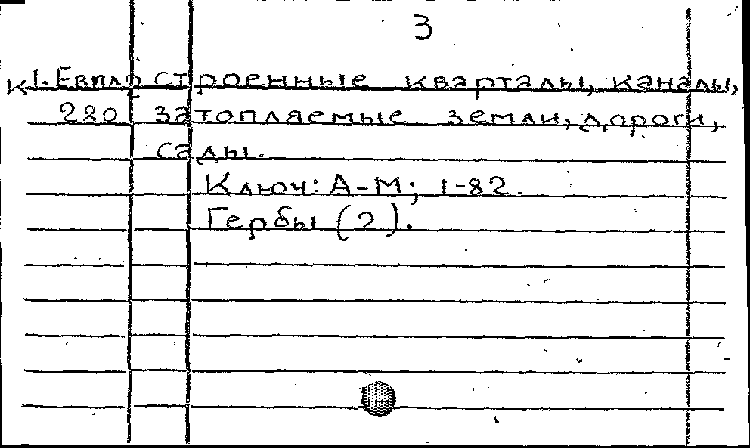 3
К 1. Евпло строенные кварталы, каналы,
280 затопляемые земли, дороги,
сады.
Ключ: А-М; 1-82.
Гербы (2).